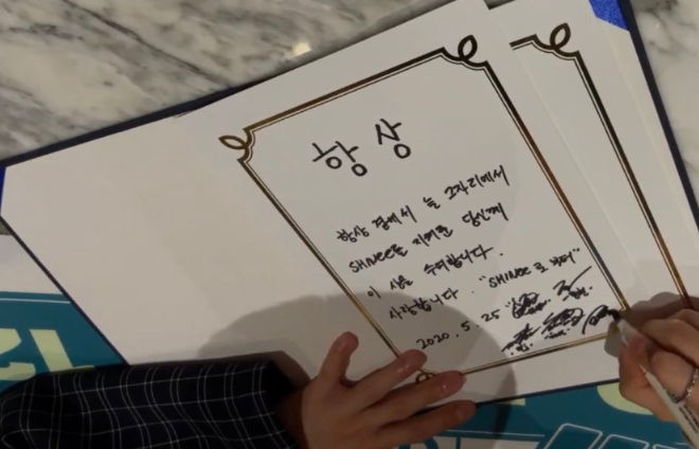 항상
항상 곁에서 늘 그자리에서
SHINee를 지켜준 당신께
이 상을 수여합니다.
사랑합니다. "SHINee 로 부터"
2020. 5. 25